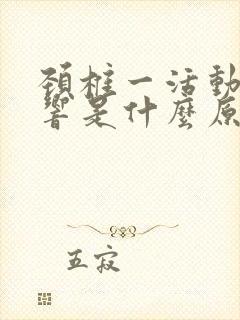 頚椎一活動
響是什麼原
五寂